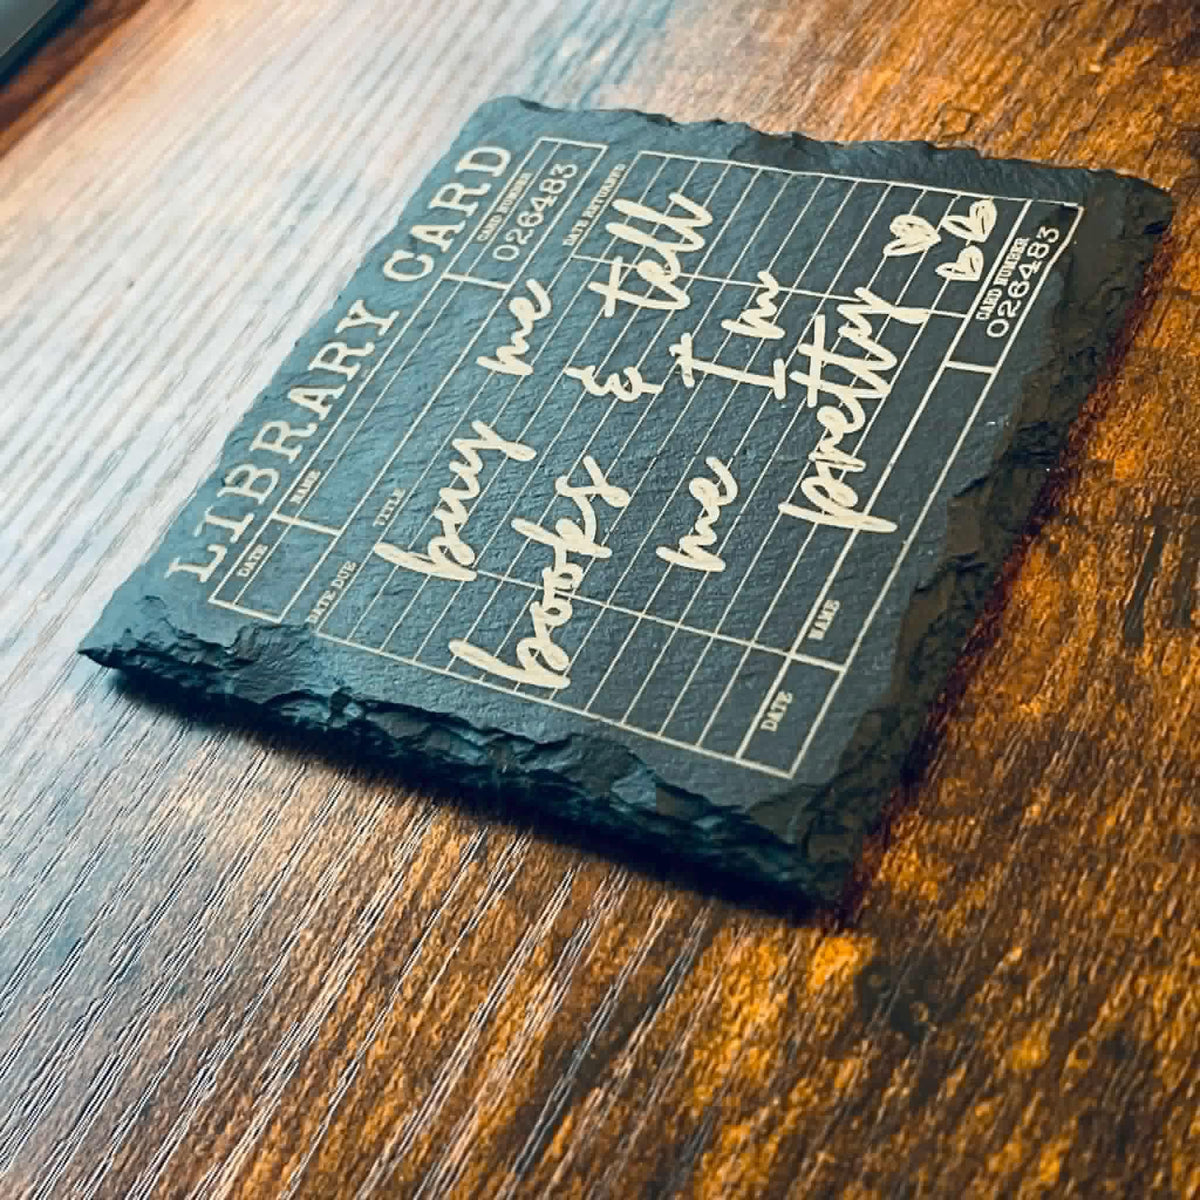 LIBRARY CARD
CARD NUMBER
026483
DATE
NAME
TITLE
DATE DUE
DATE RETURNED
buy me
books & tell
me I'm
pretty
BB
DATE
NAME
CARD NUMBER
026483